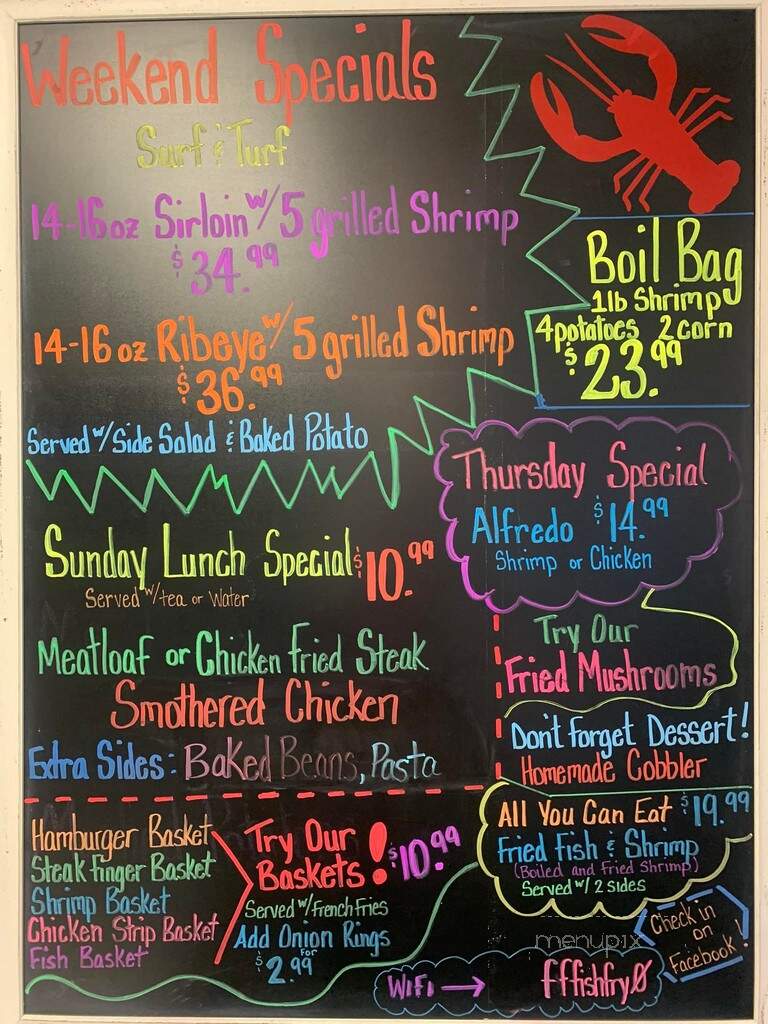 Weekend Specials
Surf & Turf
14-16oz Sirloin w/ 5 grilled Shrimp
$34.99
14-16 oz Ribeye w/ 5 grilled Shrimp
$36.99
Served w/ Side Salad & Baked Potato
Boil Bag
1lb Shrimp
4 potatoes 2 corn
$23.99
Thursday Special
Alfredo $14.99
Shrimp or Chicken
Sunday Lunch Special $10.99
Served w/ tea or Water
Meatloaf or Chicken Fried Steak
Smothered Chicken
Extra Sides: Baked Beans, Pasta
Try Our
Fried Mushrooms
Don't Forget Dessert!
Homemade Cobbler
Hamburger Basket
Steak finger Basket
Shrimp Basket
Chicken Strip Basket
Fish Basket
Try Our
Baskets! $10.99
Served w/ French Fries
Add Onion Rings
for
$2.99
All You Can Eat $19.99
Fried Fish & Shrimp
(Boiled and Fried Shrimp)
Served w/ 2 sides
menupix
Check in
on
Facebook!
WiFi → fffishfry0